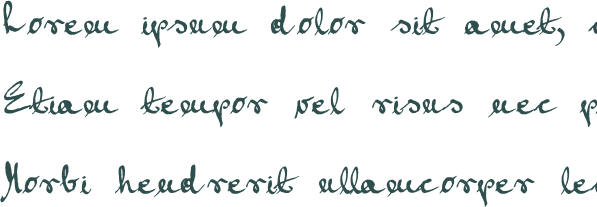 Lorem ipsum dolor sit amet,
Etiam tempor vel risus nec
Morbi hendrerit ullamcorper